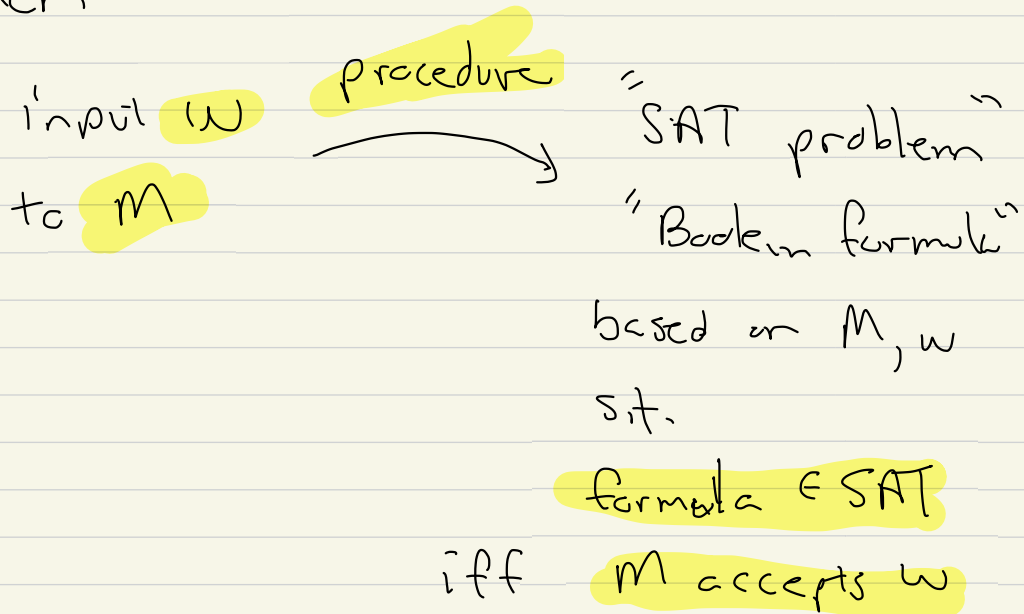 input w
to M
procedure
"SAT problem"
"Boolean formula"
based on M, w
s.t.
formula ∈ SAT
iff M accepts w